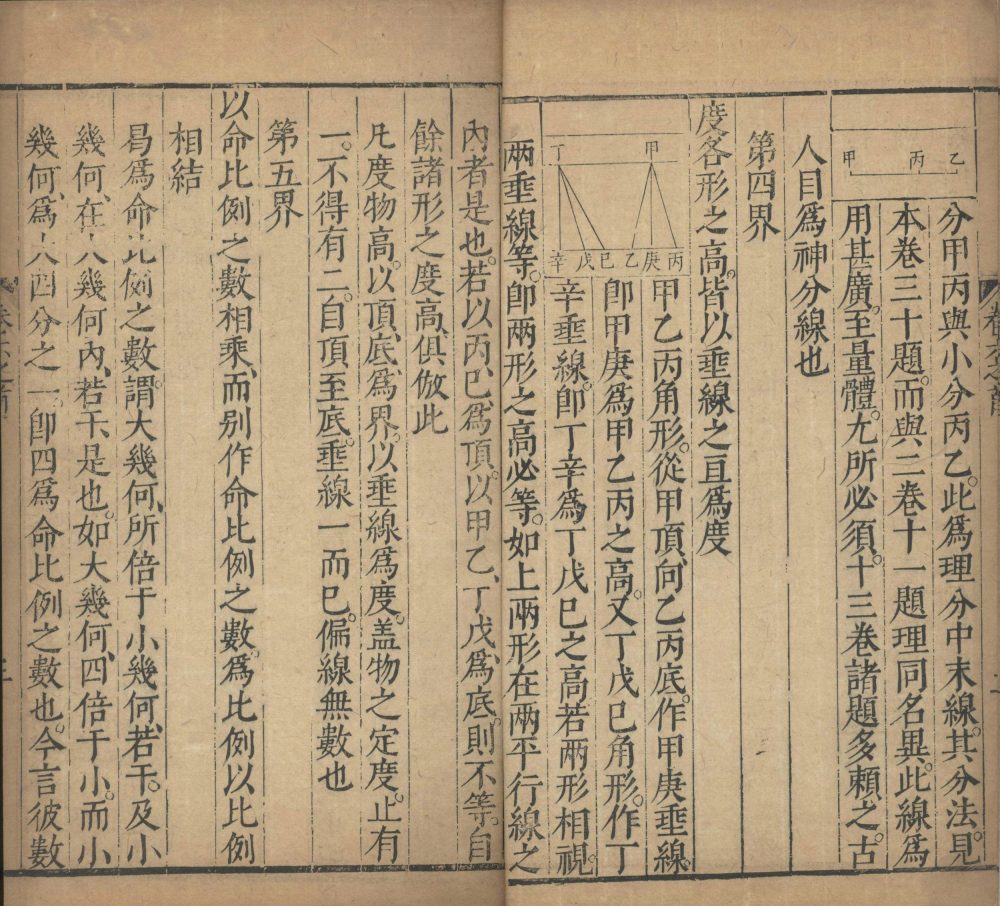 甲 丙 乙
分甲丙與小分丙乙。此爲理分中末線。其分法見
本卷三十題。而與二卷十一題理同名異。此線爲
用甚廣。至量體。尤所必須。十三卷諸題多賴之。古
人目爲神分線也
第四界
度各形之高。皆以垂線之亘爲度
丁 甲
辛 戊 巳 乙 庚 丙
甲乙丙角形。從甲頂、向乙丙底。作甲庚垂線。
卽甲庚爲甲乙丙之高。又丁戊巳角形。作丁
辛垂線。卽丁辛爲丁戊巳之高若兩形相視。
兩垂線等。卽兩形之高必等。如上兩形在兩平行線之
內者是也。若以丙、巳、爲頂。以甲乙、丁戊、爲底。則不等。自
餘諸形之度高、俱倣此
凡度物高。以頂、底、爲界。以垂線爲度。蓋物之定度。止有
一。不得有二。自頂至底。垂線一而已。偏線無數也
第五界
以命比例之數相乘、而别作命比例之數。爲比例以比例
相結
曷爲命比例之數。謂大幾何、所倍于小幾何、若干。及小
幾何、在大幾何內、若干、是也。如大幾何、四倍于小。而小
幾何、爲大四分之一。卽四爲命比例之數也。今言彼數